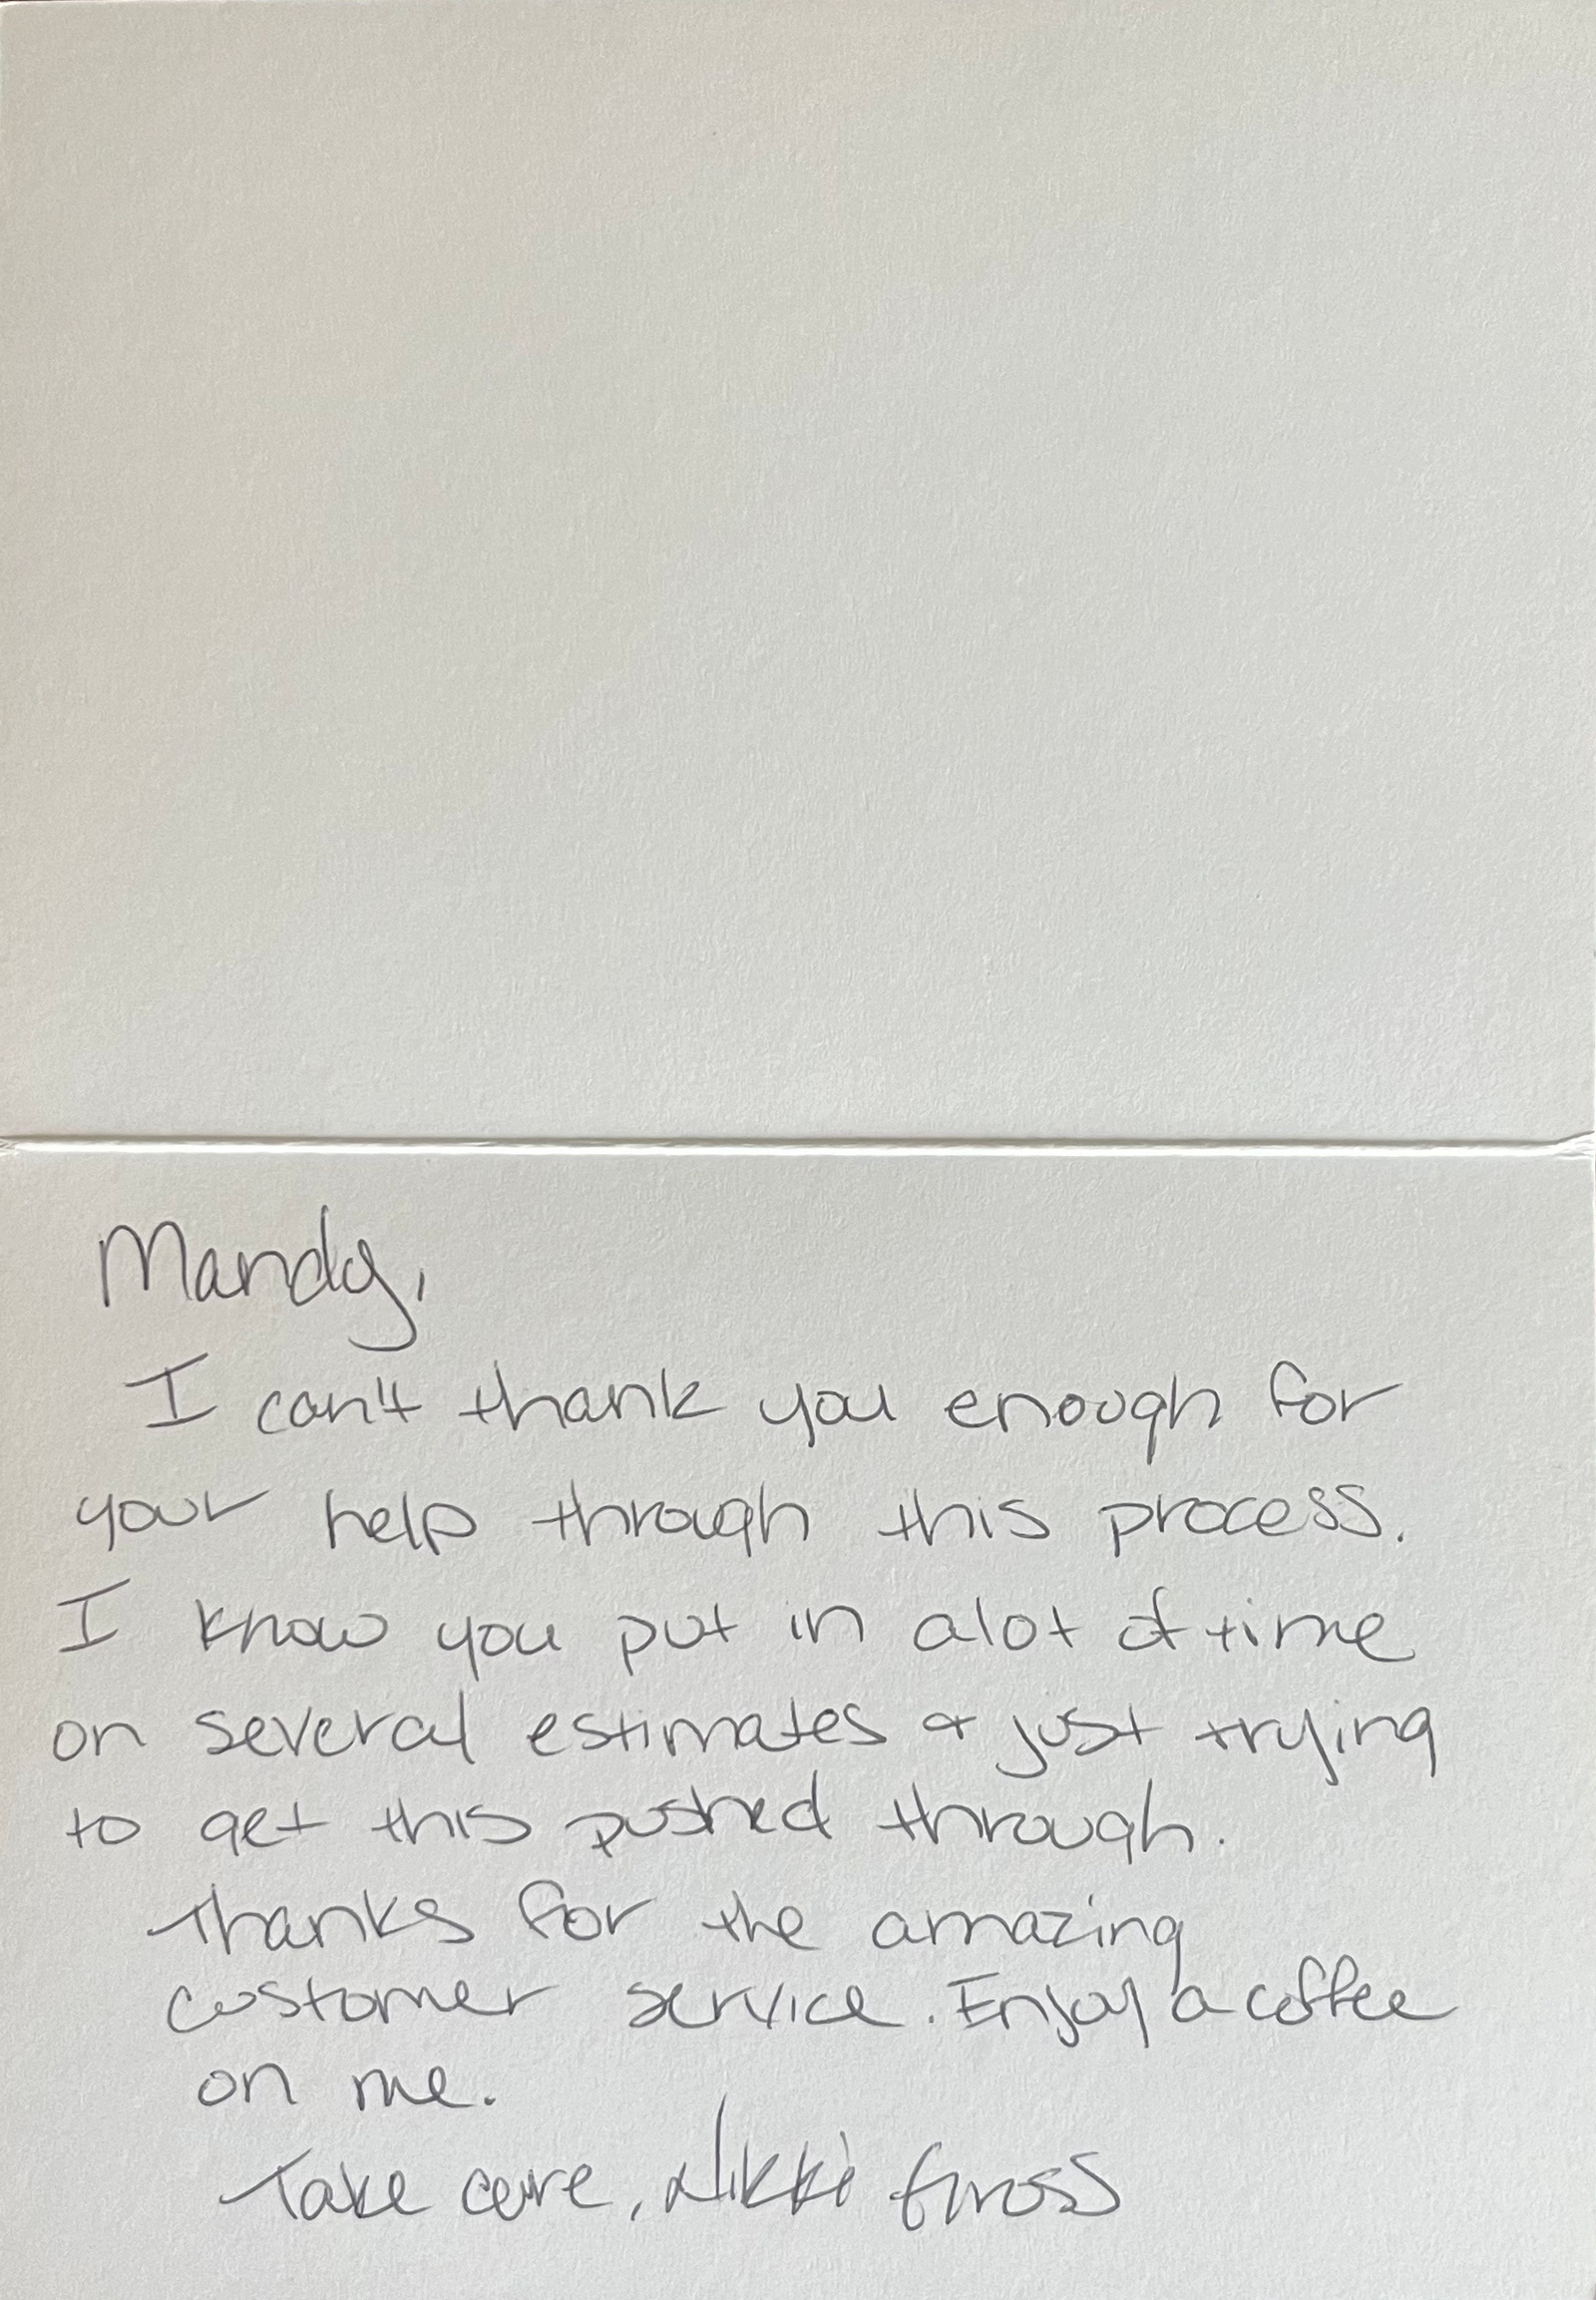 Mandy,
I can't thank you enough for
your help through this process.
I know you put in alot of time
on several estimates & just trying
to get this pushed through.
Thanks for the amazing
customer service. Enjoy a coffee
on me.
Take care, Nikki Gross